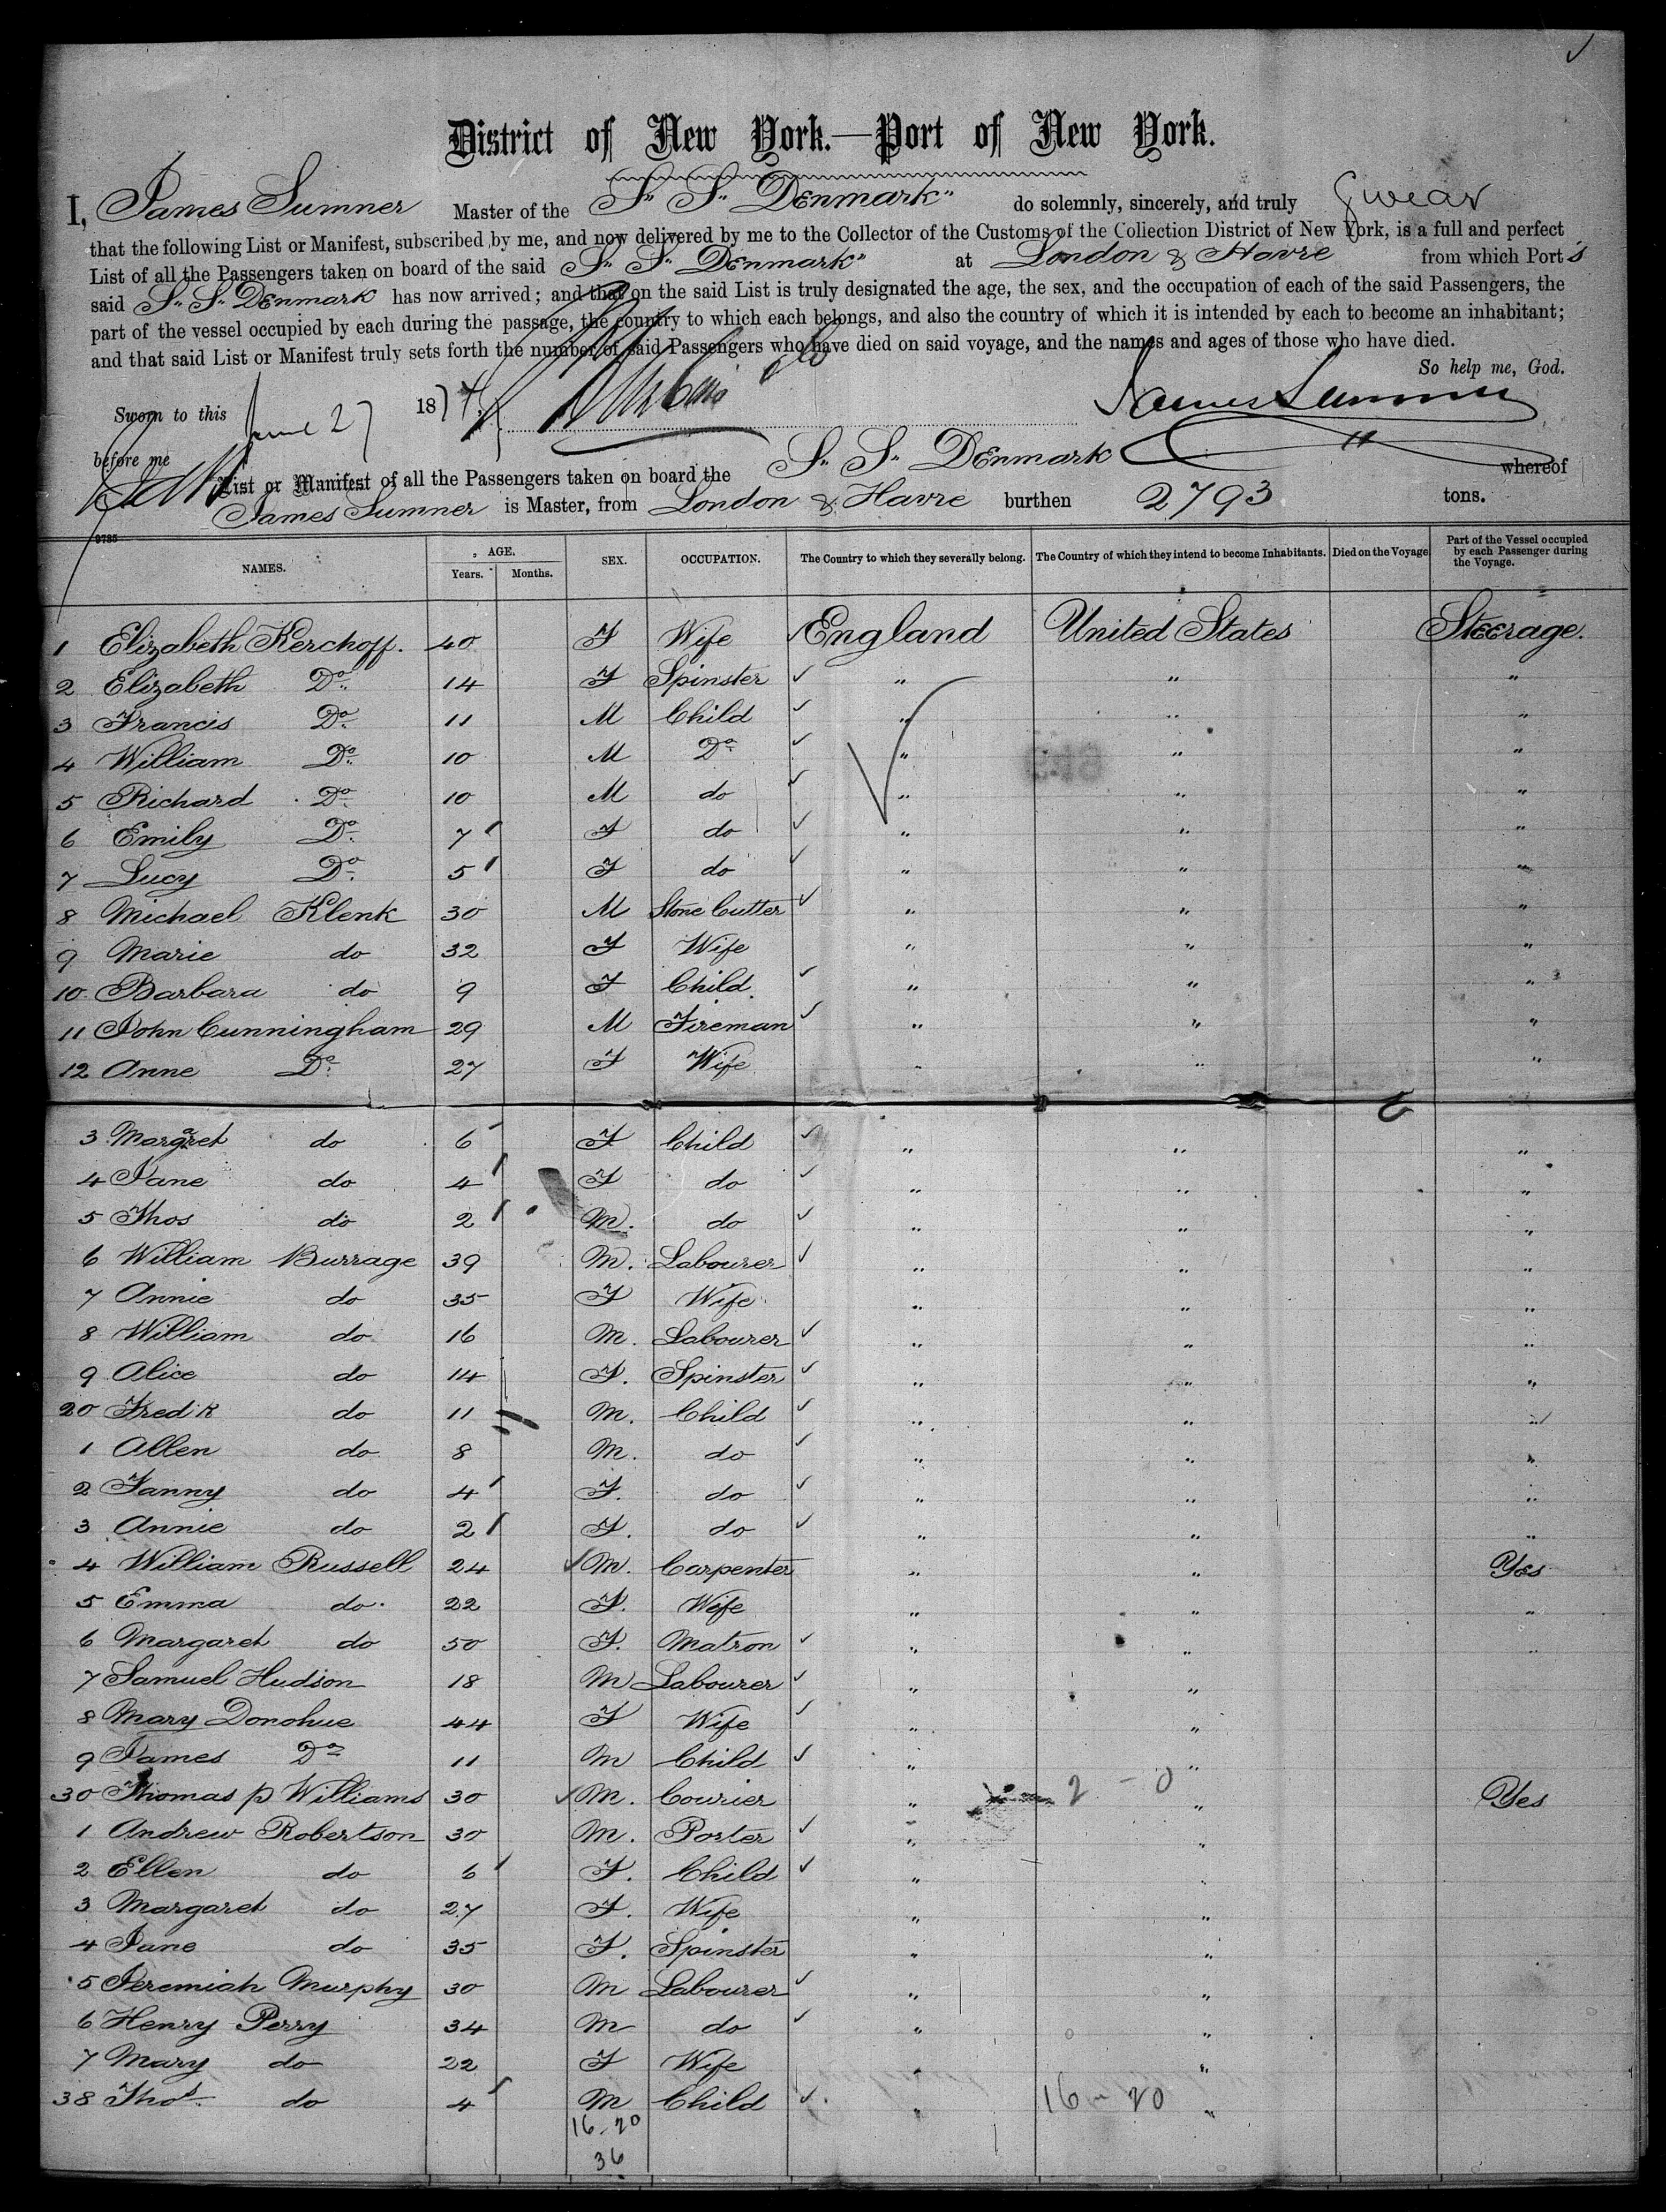 District of New York.—Port of New York.
I, James Sumner Master of the S.. S.. Denmark" do solemnly, sincerely, and truly Swear
that the following List or Manifest, subscribed by me, and now delivered by me to the Collector of the Customs of the Collection District of New York, is a full and perfect
List of all the Passengers taken on board of the said S.. S.. Denmark" at London & Havre from which Port's
said S.. S.. Denmark has now arrived; and that on the said List is truly designated the age, the sex, and the occupation of each of the said Passengers, the
part of the vessel occupied by each during the passage, the country to which each belongs, and also the country of which it is intended by each to become an inhabitant;
and that said List or Manifest truly sets forth the number of said Passengers who have died on said voyage, and the names and ages of those who have died.
So help me, God.
Sworn to this June 27 1874 James Sumner
before me
List or Manifest of all the Passengers taken on board the S.. S.. Denmark " whereof
James Sumner is Master, from London & Havre burthen 2793 tons.
9735
NAMES. AGE. Years. Months. SEX. OCCUPATION. The Country to which they severally belong. The Country of which they intend to become Inhabitants. Died on the Voyage Part of the Vessel occupied by each Passenger during the Voyage.
1 Elizabeth Kerchoff. 40 F Wife England United States Steerage.
2 Elizabeth Do 14 F Spinster " " "
3 Francis Do 11 M Child " " "
4 William Do 10 M Do " " "
5 Richard Do 10 M do " " "
6 Emily Do 7 F do " " "
7 Lucy Do 5 F do " " "
8 Michael Klenk 30 M Stone Cutter " " "
9 Marie do 32 F Wife " " "
10 Barbara do 9 F Child " " "
11 John Cunningham 29 M Fireman " " "
12 Anne Do 27 F Wife " " "
3 Margaret do 6 F Child " " "
4 Jane do 4 F do " " "
5 Thos do 2 M. do " " "
6 William Burrage 39 M. Labourer " " "
7 Annie do 35 F Wife " " "
8 William do 16 M. Labourer " " "
9 Alice do 14 F. Spinster " " "
20 Fredk do 11 M. Child " " "
1 Allen do 8 M. do " " "
2 Fanny do 4 F. do " " "
3 Annie do 2 F. do " " "
4 William Russell 24 M. Carpenter " " Yes
5 Emma do. 22 F. Wife " " "
6 Margaret do 50 F. Matron " " "
7 Samuel Hudson 18 M Labourer " "
8 Mary Donohue 44 F Wife " "
9 James Do 11 M Child " "
30 Thomas p Williams 30 M. Courier " 2 - 0 " Yes
1 Andrew Robertson 30 M. Porter " "
2 Ellen do 6 F. Child " "
3 Margaret do 27 F. Wife " "
4 Jane do 35 F. Spinster " "
5 Jeremiah Murphy 30 M Labourer " "
6 Henry Perry 34 M do " "
7 Mary do 22 F Wife " "
38 Thos do 4 M Child " 16 - 20 "
16-20
36